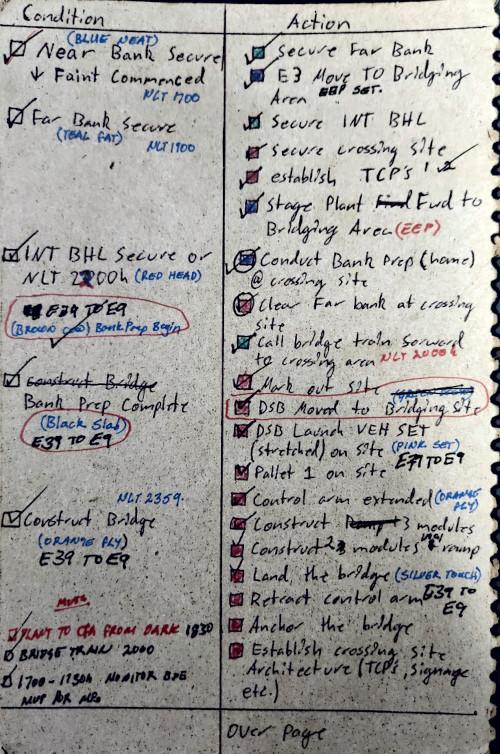 Condition
(BLUE NEAT)
Near Bank Secure
↓ Faint Commenced
NLT 1700
Far Bank Secure
(TEAL FAT)
NLT 1900
INT BHL Secure or
NLT 2200h (RED HEAD)
E39 TO E9
(BROWN COW) Bank Prep Begin
Construct Bridge
Bank Prep Complete
(Black Slab)
E39 TO E9
NLT 2359.
Construct Bridge
(ORANGE PLY)
E39 TO E9
PLANT TO CFA FROM DARK 1830
BRIDGE TRAIN 2000
1700 - 1730h MONITOR BDE
Action
Secure Far Bank
E3 Move TO Bridging
Area EBP SET.
Secure INT BHL
Secure crossing site
establish TCP's
Stage Plant Fwd to
Bridging Area (EEP)
Conduct Bank Prep (home)
@ crossing site
Clear Far bank at crossing
site
Call bridge train forward
to crossing area NLT 2000h
Mark out site
DSB Moved to Bridging Site
DSB Launch VEH SET
(stretched) on site (PINK SET)
Pallet 1 on site E39 TO E9
Control arm extended (ORANGE
PLY)
Construct Ramp + 3 modules
Construct 2 modules ramp
Land, the bridge (SILVER TOUCH)
Retract control arm E39 TO
E9
Anchor the bridge
Establish crossing site
Architecture (TCP's, signage
etc.)
Over Page